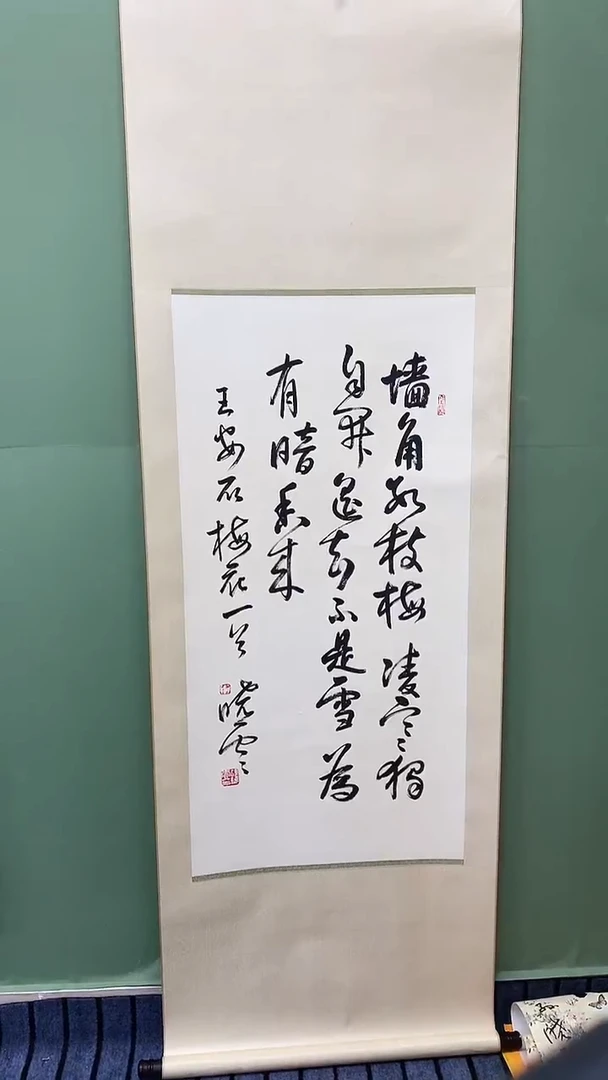 墙角数枝梅凌寒獨
自開遥知不是雪為
有暗香来
王安石梅花一首 晓雲